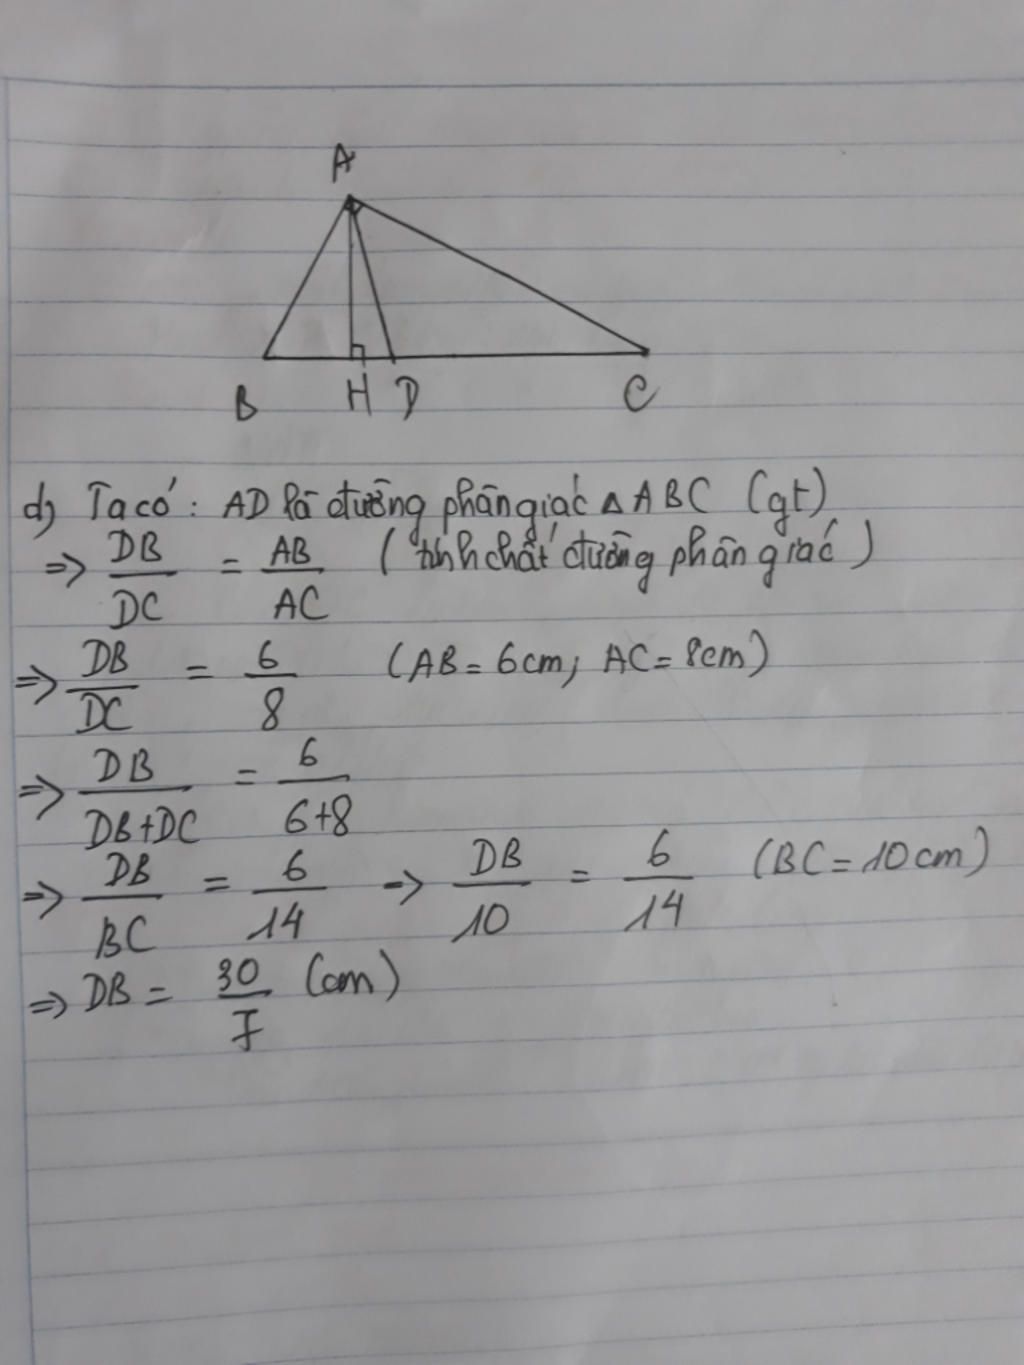 A
B H D C
d) Ta có: AD là đường phân giác △ABC (gt)
=> DB/DC = AB/AC (tính chất đường phân giác)
=> DB/DC = 6/8 (AB = 6cm; AC = 8cm)
=> DB/DB+DC = 6/6+8
=> DB/BC = 6/14 => DB/10 = 6/14 (BC = 10cm)
=> DB = 30/7 (cm)